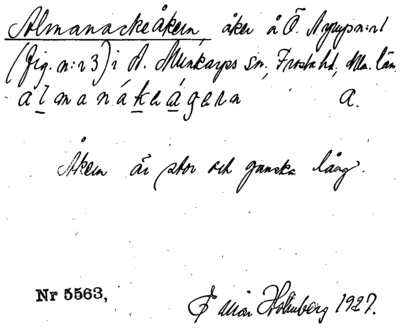 Almanackeåkern, åker å Ö. Nyrup n:r 1
(fig. n:r 3) i Ö. Munkarps sn, Frosta hd, Mlm. län
almanákeågeṙa a.
Åkern är stor och ganska lång.
Nr 5563, Holmberg 1927.